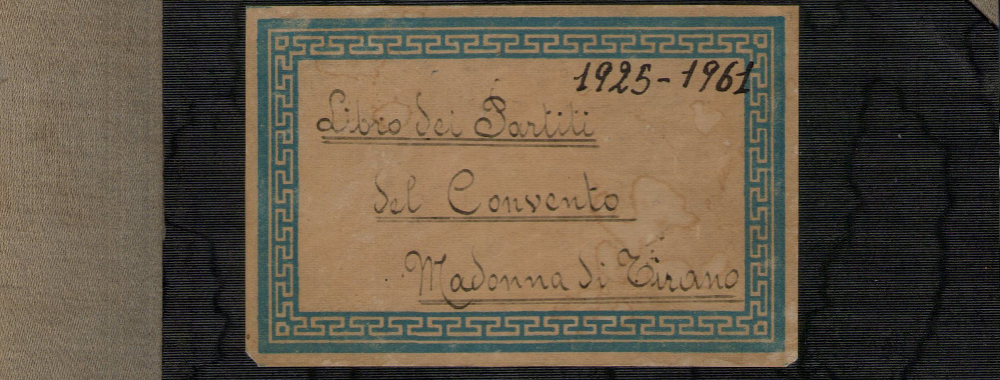 1925-1961
Libro dei Partiti
del Convento
Madonna di Tirano